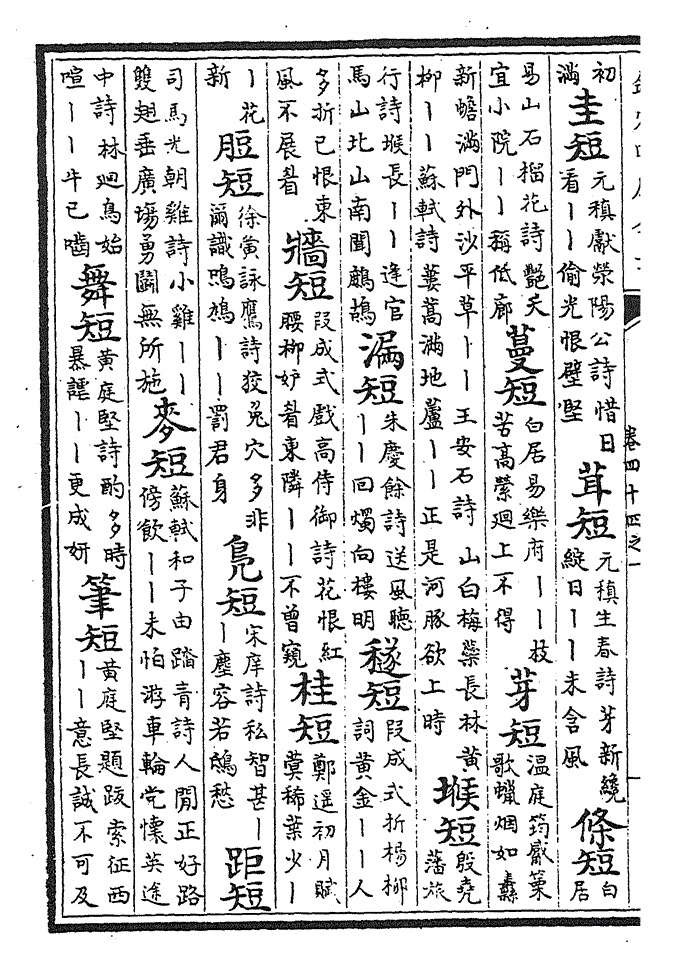 卷四十四之一
初滿 圭短 元稹獻滎陽公詩惜日看丨丨偷光恨壁堅 茸短 元稹生春詩芽新纔綻日丨丨未含風 條短 白居
易山石榴花詩艷夭宜小院丨丨稱低廊 蔓短 白居易樂府丨丨枝苦高縈迴上不得 芽短 温庭筠觱篥歌蠟烟如纛
新蟾滿門外沙平草丨丨 王安石詩 山白梅蘂長林黄柳丨丨 蘇軾詩 蔞蒿滿地蘆丨丨正是河豚欲上時 堠短 殷堯藩旅
行詩堠長丨丨逢官馬山北山南聞鷓鴣 漏短 朱慶餘詩送風聽丨丨回燭向樓明 穟短 段成式折楊柳詞黄金丨丨人
多折已恨東風不展眉 牆短 段成式戲高侍御詩花恨紅腰柳妒眉東隣丨丨不曾窺 桂短 鄭遥初月賦蓂稀葉少丨
丨花新 脰短 徐夤詠鷹詩狡兔穴多非爾識鳴鳩丨丨罰君身 鳬短 宋庠詩私智甚丨丨塵容若鴟愁 距短
司馬光朝雞詩小雞丨丨雙翅垂廣場勇鬭無所施 麥短 蘇軾和子由踏青詩人閒正好路傍飲丨丨未怕游車輪党懷英途
中詩林迴鳥始喧丨丨牛已嚙 舞短 黄庭堅詩酌多時暴謔丨丨更成妍 筆短 黄庭堅題跋索征西丨丨意長誠不可及